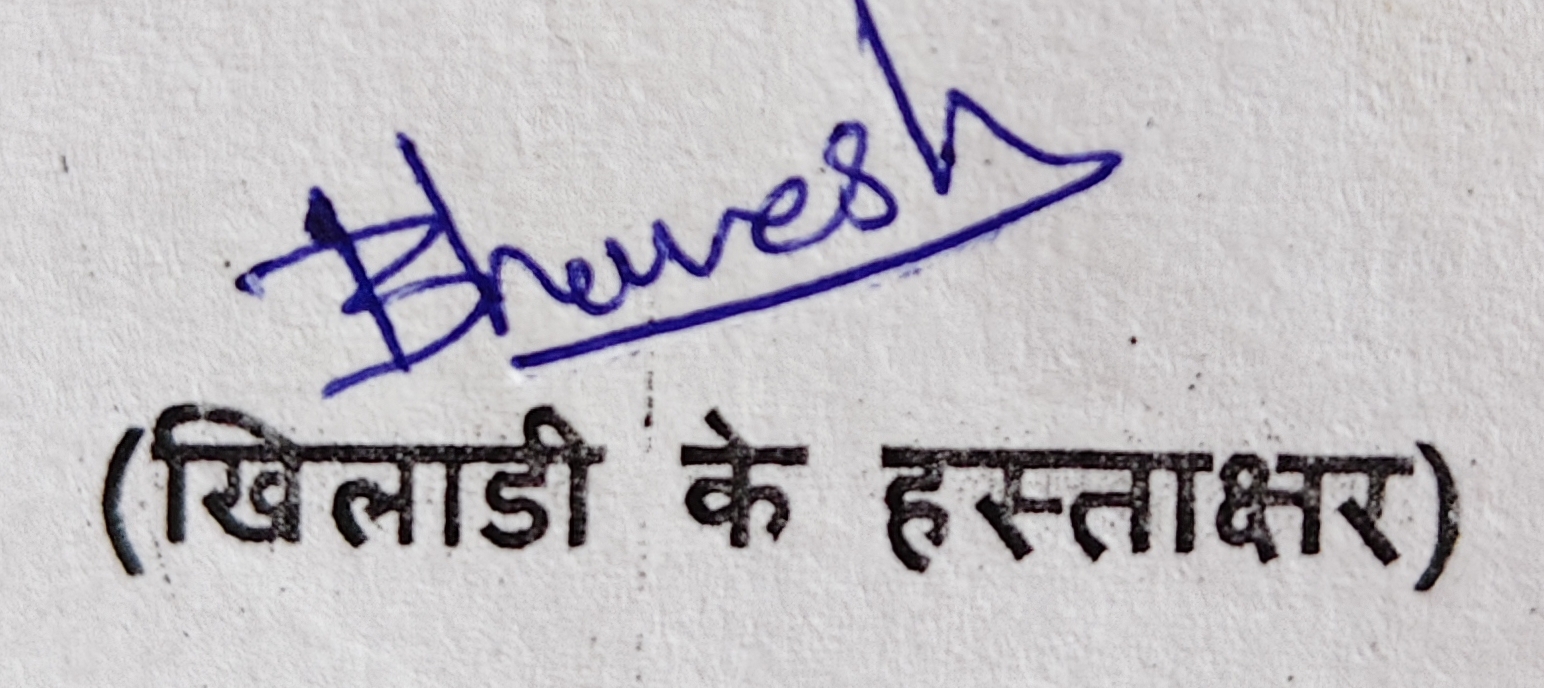 Bhavesh
(खिलाडी के हस्ताक्षर)